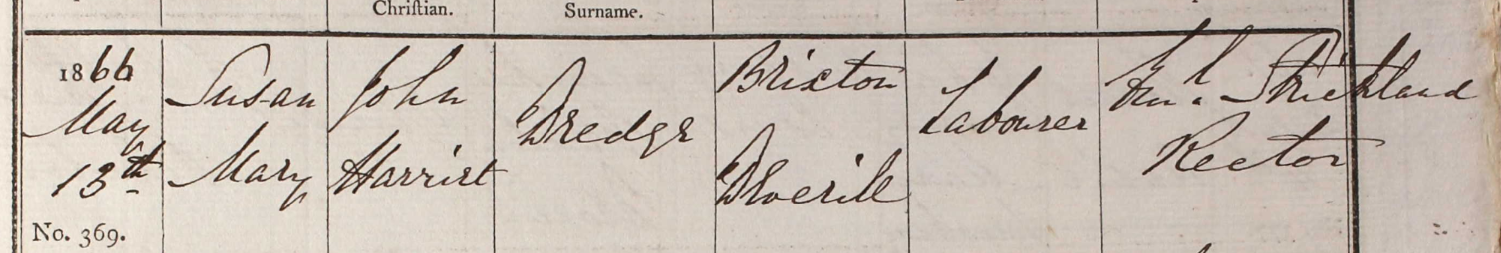 Christian. Surname.
1866 Susan John Dredge Brixton Labourer Strickland
May
13th Mary Harriet Dverill Rector
No. 369.